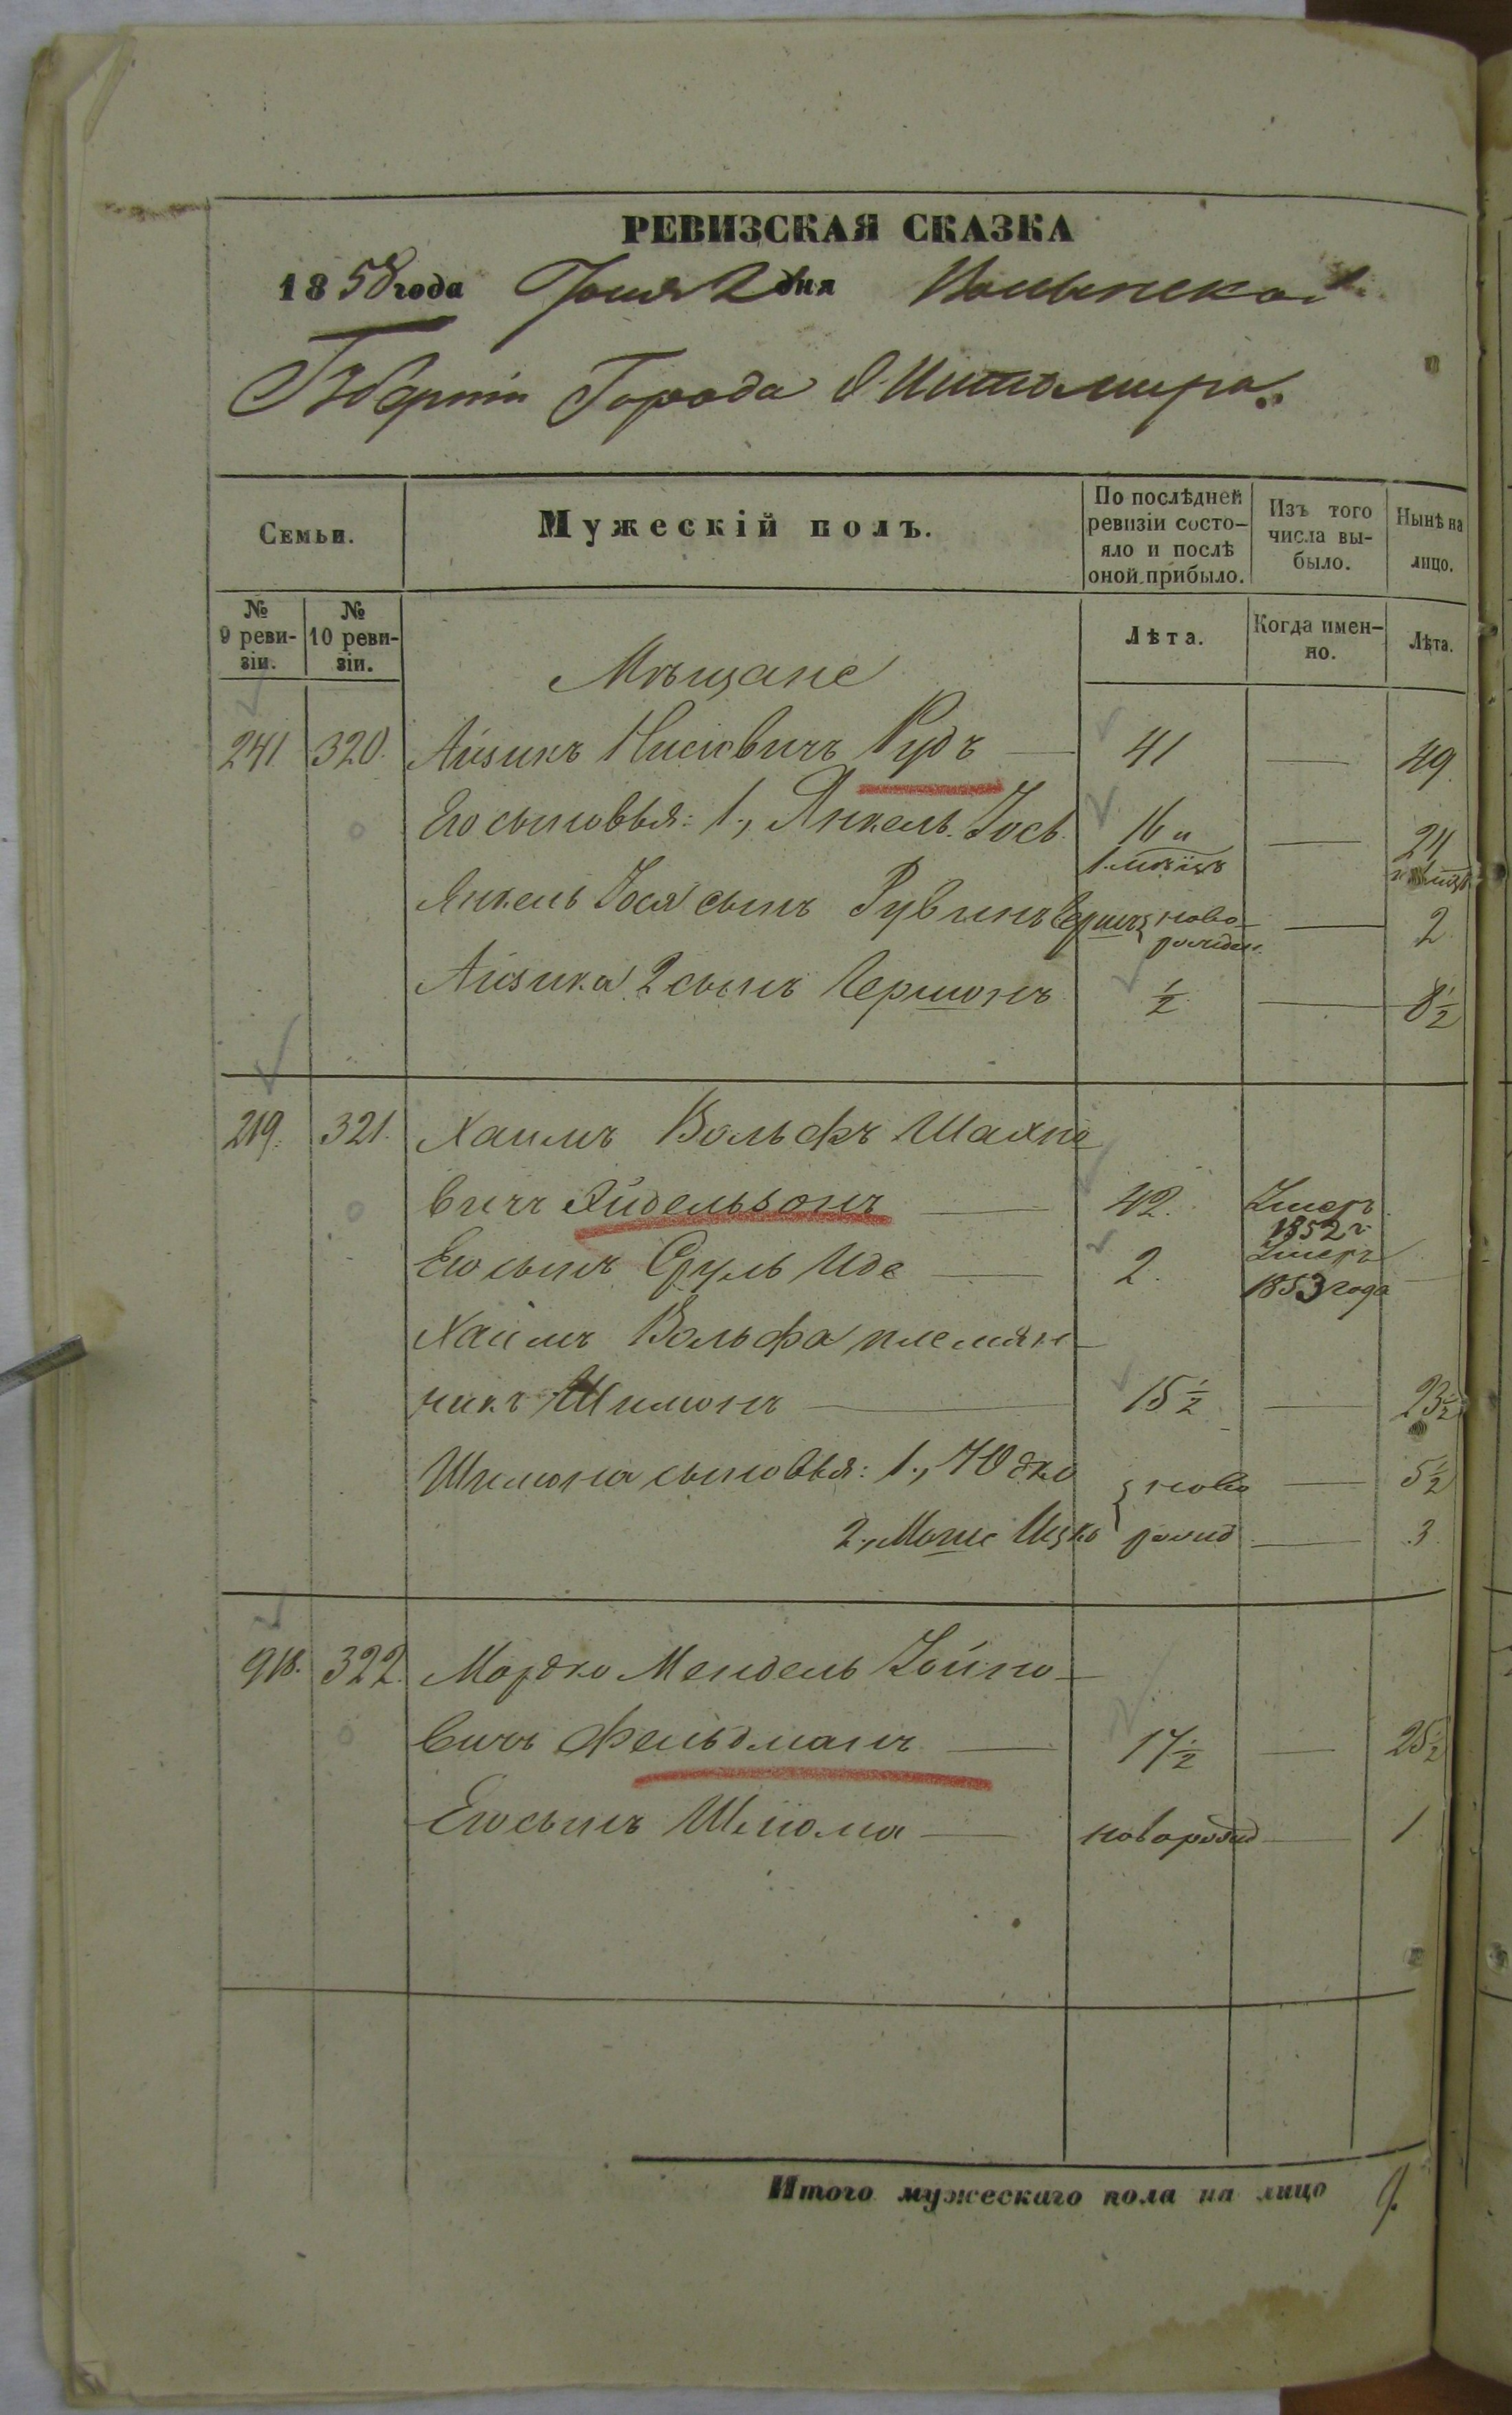 РЕВИЗСКАЯ СКАЗКА
1858 года Іюня 2 дня Волынской
Губерніи Города Житомира
Семьи.
Мужескій полъ.
По послѣдней ревизіи состо-
яло и послѣ оной прибыло.
Изъ того числа вы-
было.
Нынѣ на лицо.
№ 9 реви-
зіи.
№ 10 реви-
зіи.
Лѣта.
Когда имен-
но.
Лѣта.
Мѣщане
241 320. Айзикъ Рудъ — 41 — 49
Его сыновья: 1., Янкель Іось 16 и 1. мѣсцъ — 24
Янкель Іося сынъ Рувинъ Гершъ новорожден. — 2
Айзика 2 сынъ Гершонъ ½ — 8½
219. 321. Хаимъ Вольфъ Шахно
вичъ Айдельзонъ — 42. Умеръ 1852 г
Его сынъ Сруль Иде — 2. Умеръ 1853 года —
Хаимъ Вольфа племян-
никъ Шимонъ — 15½ — 23½
Шимона сыновья: 1., Юдко ново — 5½
2., Моше Ицко рожд — 3
918. 322. Мордко Мендель Зойно-
вичъ Фельдманъ — 17½ — 25½
Его сынъ Шлиома — новорожд — 1
Итого мужескаго пола на лицо 9.